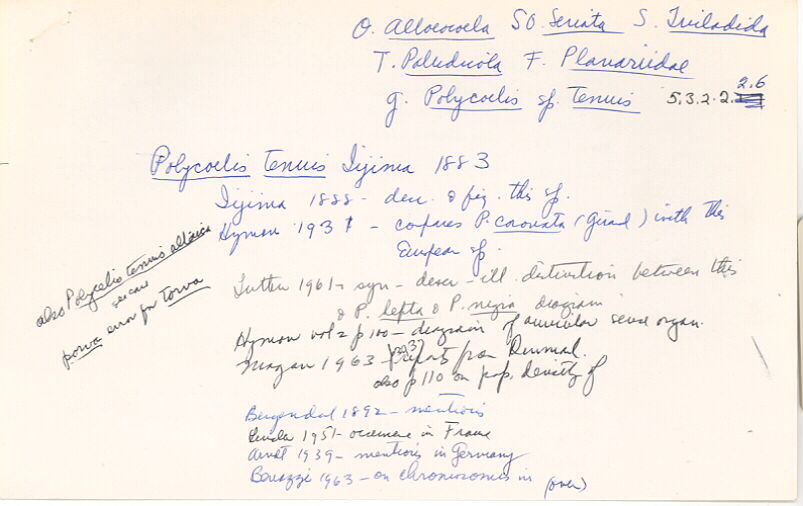 O. Alloeocoela SO. Seriata S. Tricladida
T. Paludicola F. Planariidae
g. Polycoelis sp. Tenuis 5.3.2.2. 2.6
Polycoelis tenuis Ijima 1883
Ijima 1888 - desc. & fig. this sp.
Hyman 1931 - compares P. coronata (Girard) with this
European sp.
Luther 1961 - syn - descr - ill. distinction between this
& P. lepta & P. negra diagram
Hyman vol 2 p 100 - diagram of auricular sense organ.
1963 - (p93) reports from Denmark.
also p 110 on pop. density of
Bergendal 1892 - mentions
1951 - occurrence in France
Arndt 1939 - mentions in Germany
Benazzi 1963 - on chromosomes in (over)
also Polycelis tenuis
see card
porva error for Torva